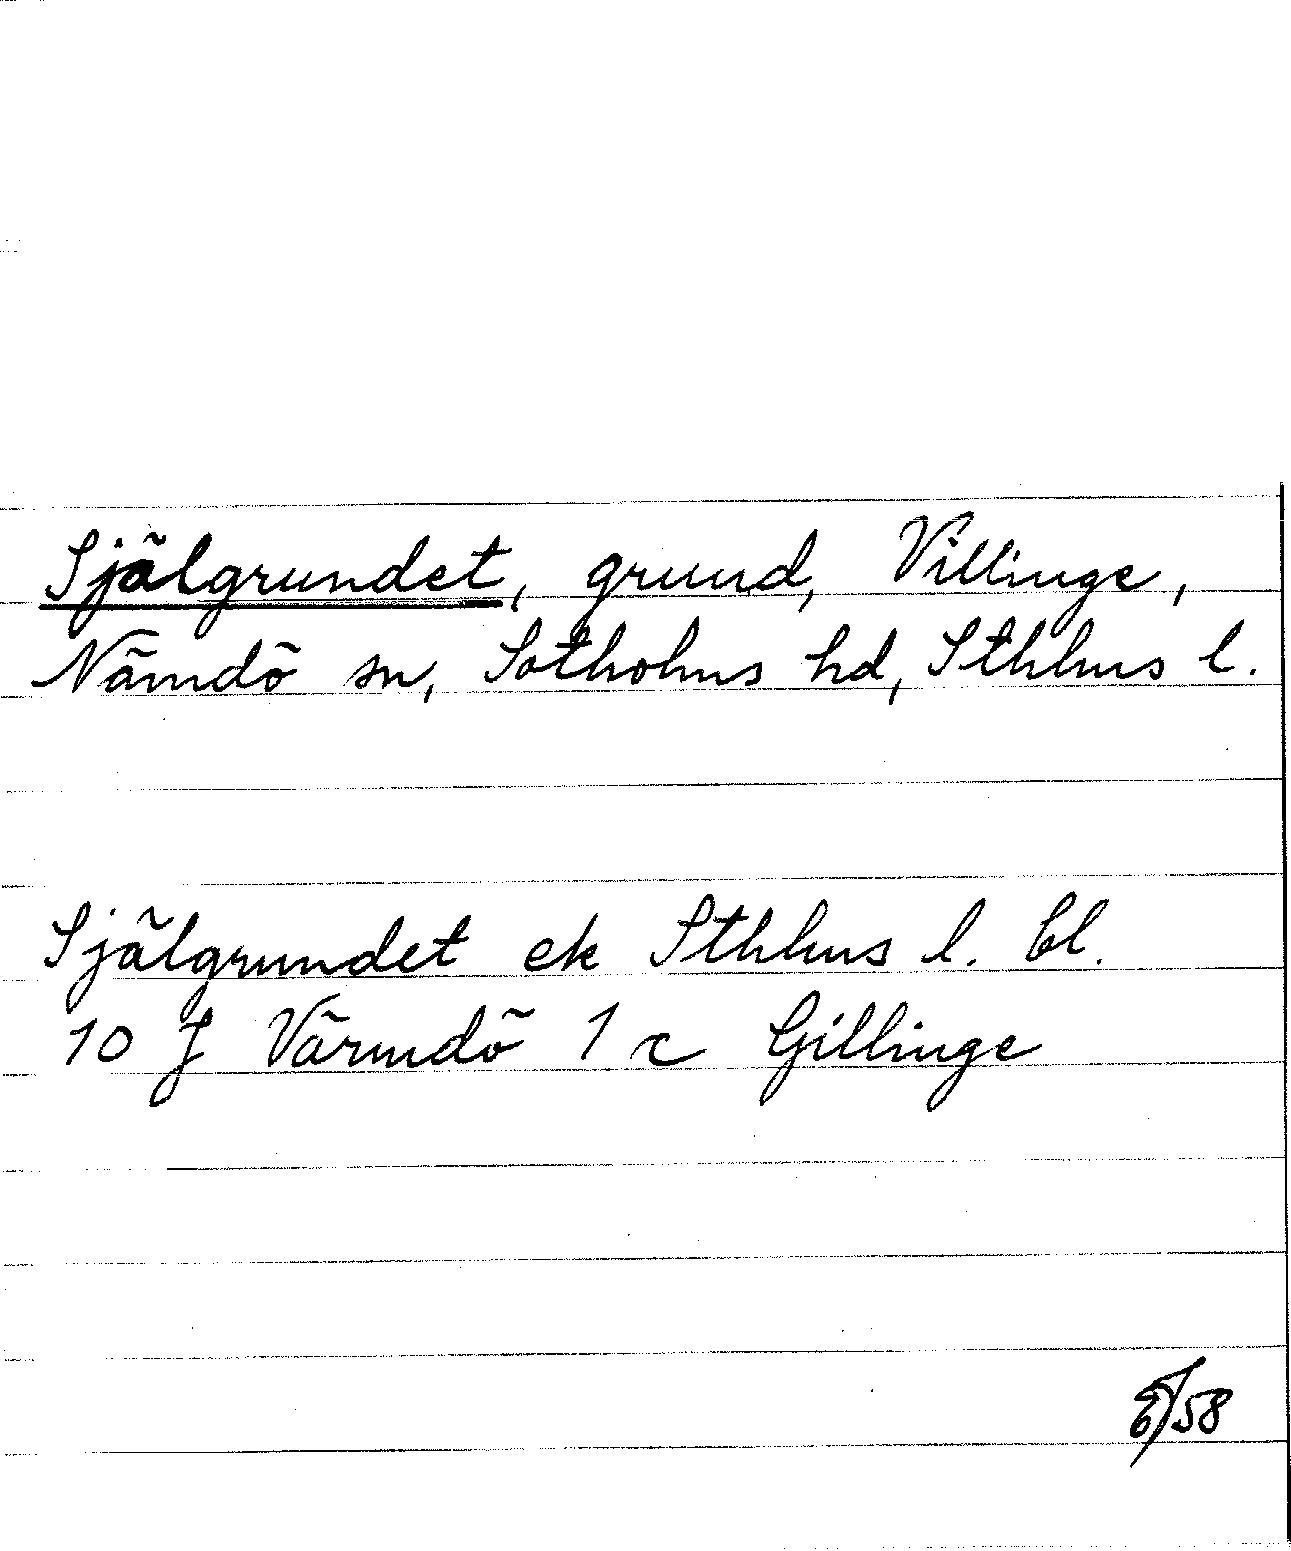 Själgrundet, grund, Villinge,
Nämdö sn, Sotholms hd, Sthlms l.
Själgrundet ek Sthlms l. bl.
10 J Värmdö 1 c Gillinge
/58